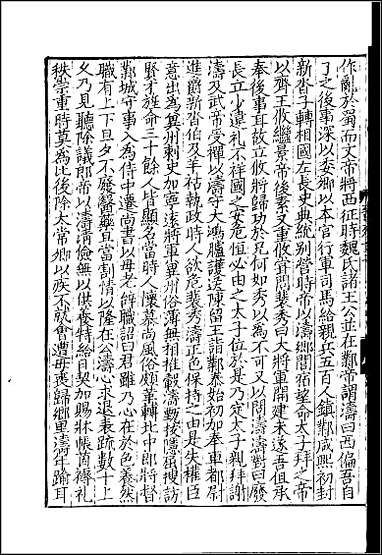 作亂於蜀而文帝將西征時魏氏諸王公並在鄴帝謂濤曰西偏吾自
了之後事深以委卿以本官行軍司馬給親兵五百人鎮鄴咸熙初封
新沓子轉相國左長史典統別營時帝以濤鄉閭宿望命太子拜之帝
以齊王攸繼景帝後素又重攸嘗問裴秀曰大將軍開建未遂吾但承
奉後事耳故立攸將歸功於兄何如秀以為不可又以問濤濤對曰廢
長立少違礼不祥國之安危恒必由之太子位於是乃定太子親拜謝
濤及武帝受禪以濤守大鴻臚護送陳留王詣鄴泰始初加奉車都尉
進爵新沓伯及羊祜執政時人欲危裴秀濤正色保持之由是失權臣
意出為冀州刺史加寧遠將軍冀州俗薄無相推轂濤甄拔隱屈搜訪
賢才旌命三十餘人皆顯名當時人懷慕尚風俗頗革轉北中郎將督
鄴城守事入為侍中遷尚書以母老辭職詔曰君雖乃心在於色養然
職有上下旦夕不廢醫藥且當割情以隆在公濤心求退表疏數十上
久乃見聽除議郎帝以濤清儉無以供養特給日契加賜牀帳茵褥礼
秩崇重時莫為比後除太常卿以疾不就會遭母喪歸鄉里濤年踰耳